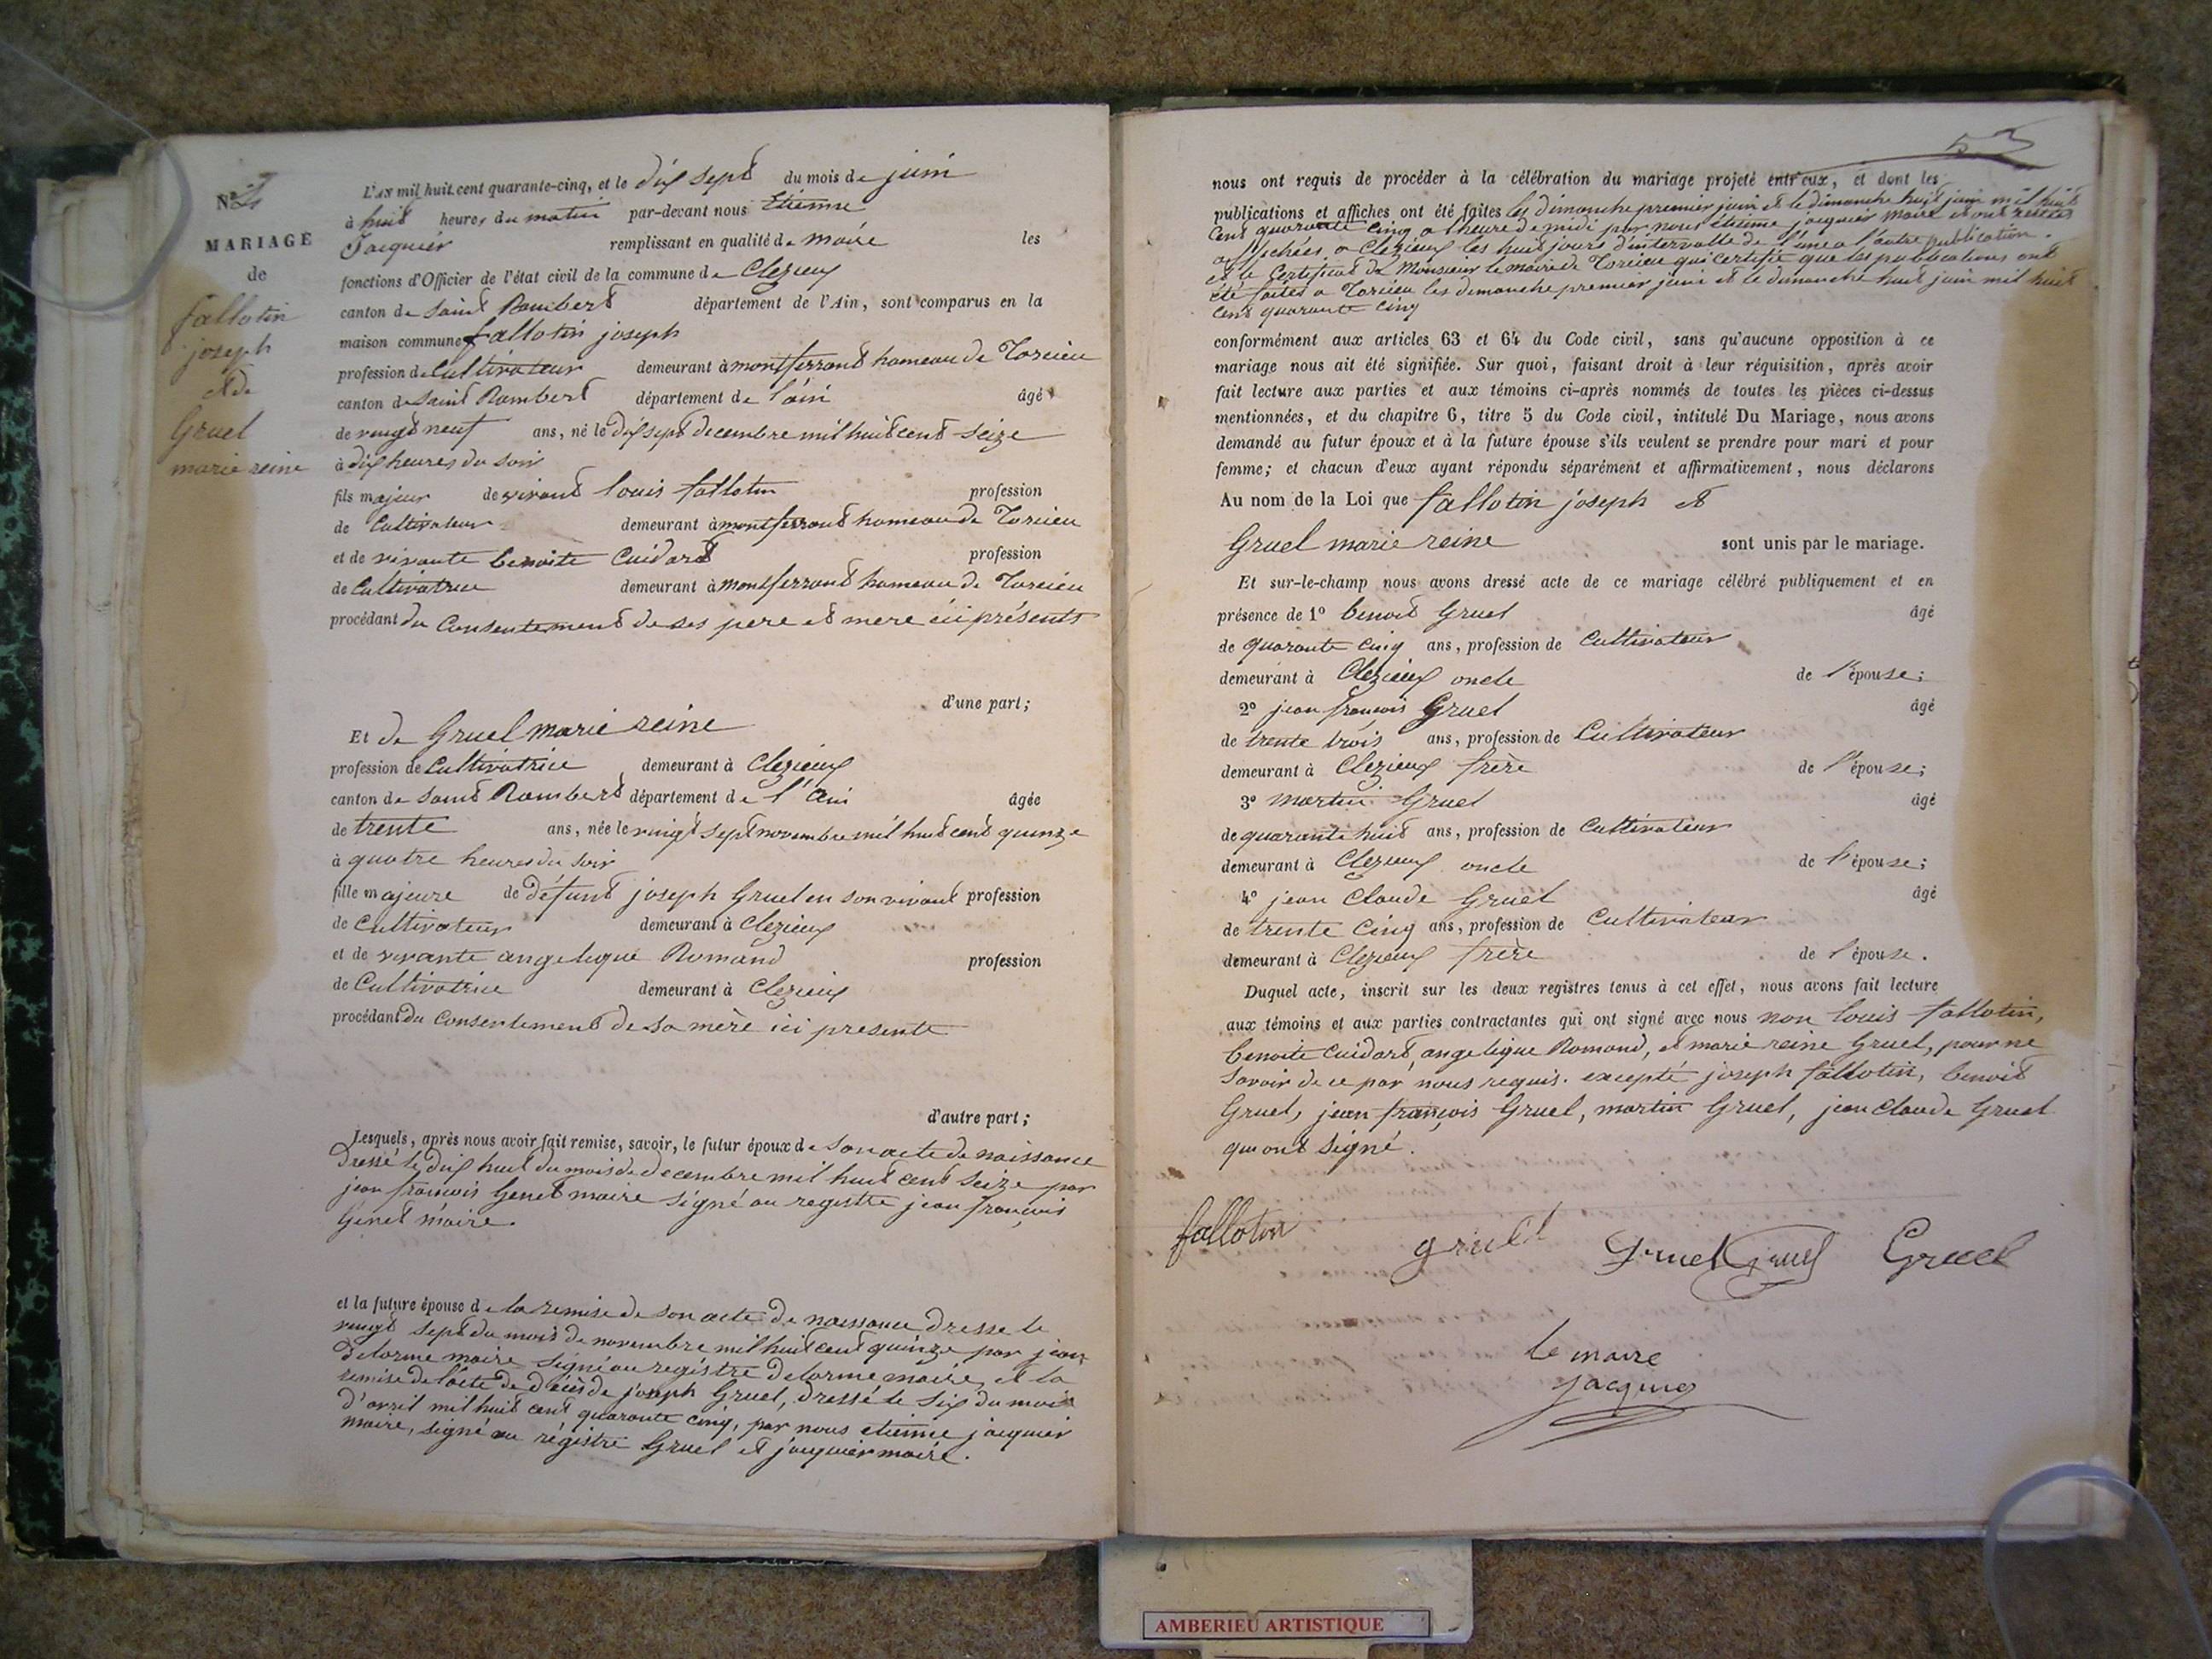 MARIAGE
de
fallotin
joseph
et de
Gruel
marie reine
L'AN mil huit cent quarante-cinq, et le dix sept du mois de juin
à huit heures du matin par-devant nous Etienne
Jacquier remplissant en qualité de maire les
fonctions d'Officier de l'état civil de la commune de Clezieux
canton de Saint Rambert département de l'Ain, sont comparus en la
maison commune fallotin joseph
profession de Cultivateur demeurant à montferrant hameau de Torcieu
canton de Saint Rambert département de l'ain âgé
de vingt neuf ans, né le dix sept decembre mil huit cent seize
à dix heures du soir
fils majeur de vivant louis fallotin profession
de Cultivateur demeurant à montferrant hameau de Torcieu
et de vivante benoite Cuidard profession
de Cultivatrice demeurant à montferrant hameau de Torcieu
procédant du Consentement de ses pere et mere ici présents
d'une part;
Et de Gruel marie reine
profession de Cultivatrice demeurant à Clezieux
canton de Saint Rambert département de l'Ain âgée
de trente ans, née le vingt sept novembre mil huit cent quinze
à quatre heures du soir
fille majeure de défunt joseph Gruel en son vivant profession
de Cultivateur demeurant à Clezieux
et de vivante angelique Romand profession
de Cultivatrice demeurant à Clezieux
procédant du Consentement de sa mère ici presente
d'autre part;
Lesquels, après nous avoir fait remise, savoir, le futur époux de son acte de naissance
Dressé le dix huit du mois de decembre mil huit cent seize par
jean françois Genet maire signé au registre jean françois
Genet maire.
et la future épouse de la remise de son acte de naissance dresse le
vingt sept du mois de novembre mil huit cent quinze par jean
Delorme maire signé au registre Delorme maire, et la
remise de l'acte de décès de joseph Gruel, dressé le six du mois
d'avril mil huit cent quarante cinq, par nous etienne jacquier
maire, signé au régistre Gruel et jacquier maire.
53
nous ont requis de procéder à la célébration du mariage projeté entr'eux, et dont les
publications et affiches ont été faites les dimanche premier juin et le dimanche huit juin mil huit
Cent quarante cinq a heure de midi par nous étienne jacquier maire et ont restés
affichées a Clezieux les huit jours d'intervalle de l'une a l'autre publication.
et le Certificat de Monsieur le maire de Torcieu qui certifie que les publications ont
été faites a Torcieu les dimanche premier juin et le dimanche huit juin mil huit
Cent quarante cinq
conformément aux articles 63 et 64 du Code civil, sans qu'aucune opposition à ce
mariage nous ait été signifiée. Sur quoi, faisant droit à leur réquisition, après avoir
fait lecture aux parties et aux témoins ci-après nommés de toutes les pièces ci-dessus
mentionnées, et du chapitre 6, titre 5 du Code civil, intitulé Du Mariage, nous avons
demandé au futur époux et à la future épouse s'ils veulent se prendre pour mari et pour
femme; et chacun d'eux ayant répondu séparément et affirmativement, nous déclarons
Au nom de la Loi que fallotin joseph et
Gruel marie reine sont unis par le mariage.
Et sur-le-champ nous avons dressé acte de ce mariage célébré publiquement et en
présence de 1º benoit Gruel âgé
de quarante cinq ans, profession de Cultivateur
demeurant à Clezieux oncle de l'épouse;
2º jean françois Gruel âgé
de trente trois ans, profession de Cultivateur
demeurant à Clezieux frère de l'épouse;
3º martin Gruel âgé
de quarante huit ans, profession de Cultivateur
demeurant à Clezieux oncle de l'épouse;
4º jean Claude Gruel âgé
de trente Cinq ans, profession de Cultivateur
demeurant à Clezieux frère de l'épouse.
Duquel acte, inscrit sur les deux registres tenus à cet effet, nous avons fait lecture
aux témoins et aux parties contractantes qui ont signé avec nous non louis fallotin,
benoite Cuidard, angelique Romand, et marie reine Gruel, pour ne
Savoir de ce par nous requis. excepté joseph fallotin, benoit
Gruel, jean françois Gruel, martin Gruel, jean Claude Gruel
qui ont signé.
fallotin gruel Gruel Gruel Gruel
le maire
jacquier
AMBERIEU ARTISTIQUE